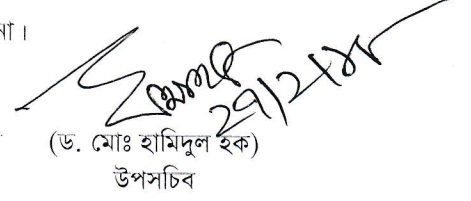 না।
২৭/২/১৮
(ড. মোঃ হামিদুল হক)
উপসচিব